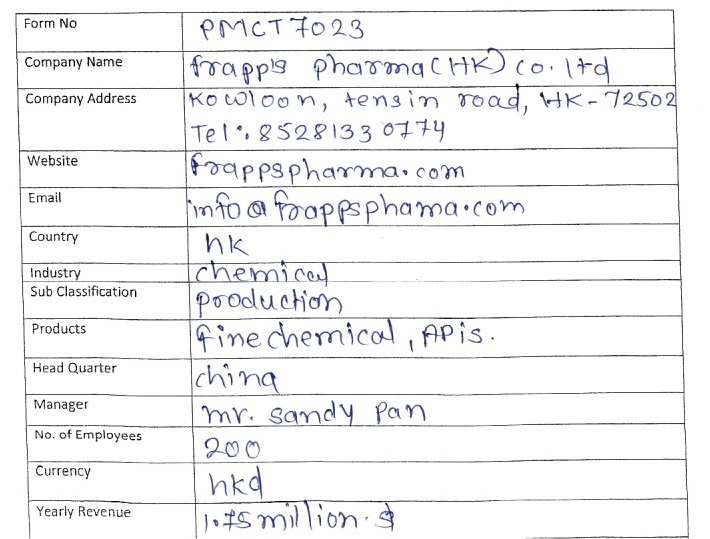 Form No PMCT7023
Company Name frapp's pharma(HK) co. ltd
Company Address Kowloon, tensin road, HK-72502
Tel: 8528133 0774
Website frappspharma.com
Email info@frappsphama.com
Country hk
Industry chemical
Sub Classification production
Products fine chemical, APis.
Head Quarter china
Manager mr. sandy pan
No. of Employees 200
Currency hkd
Yearly Revenue 1.75 million.$